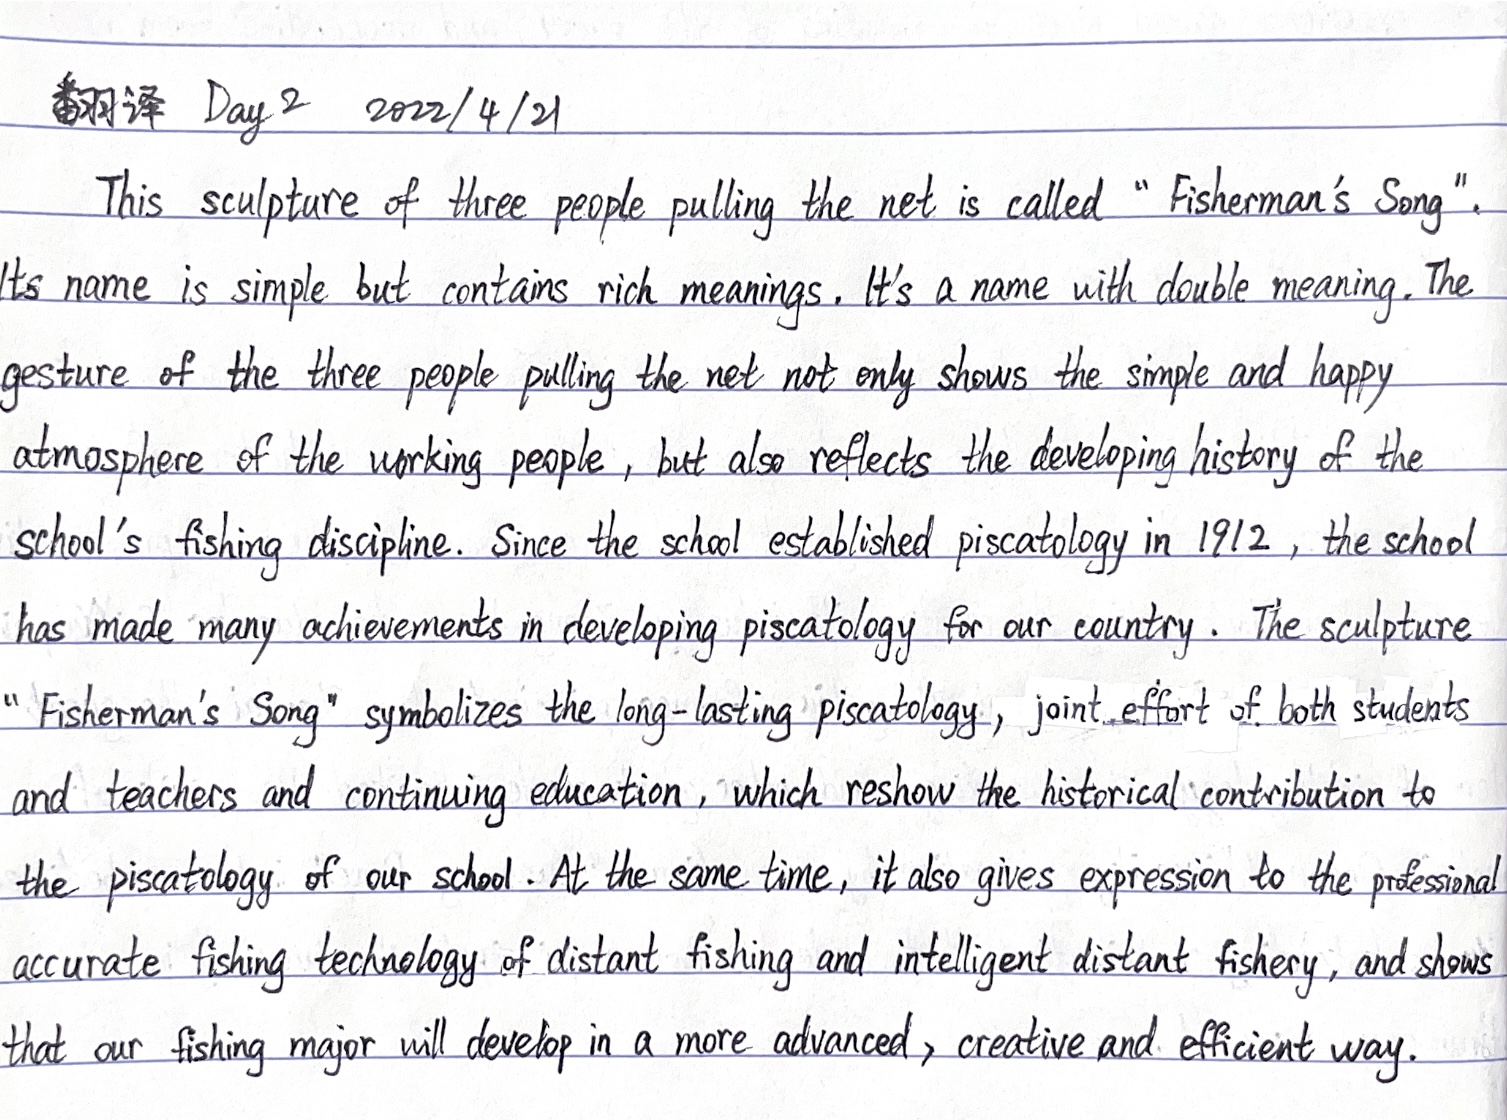 翻译 Day 2 2022/4/21
This sculpture of three people pulling the net is called "Fisherman's Song".
Its name is simple but contains rich meanings. It's a name with double meaning. The
gesture of the three people pulling the net not only shows the simple and happy
atmosphere of the working people, but also reflects the developing history of the
school's fishing discipline. Since the school established piscatology in 1912, the school
has made many achievements in developing piscatology for our country. The sculpture
"Fisherman's Song" symbolizes the long-lasting piscatology, joint effort of both students
and teachers and continuing education, which reshow the historical contribution to
the piscatology of our school. At the same time, it also gives expression to the professional
accurate fishing technology of distant fishing and intelligent distant fishery, and shows
that our fishing major will develop in a more advanced, creative and efficient way.